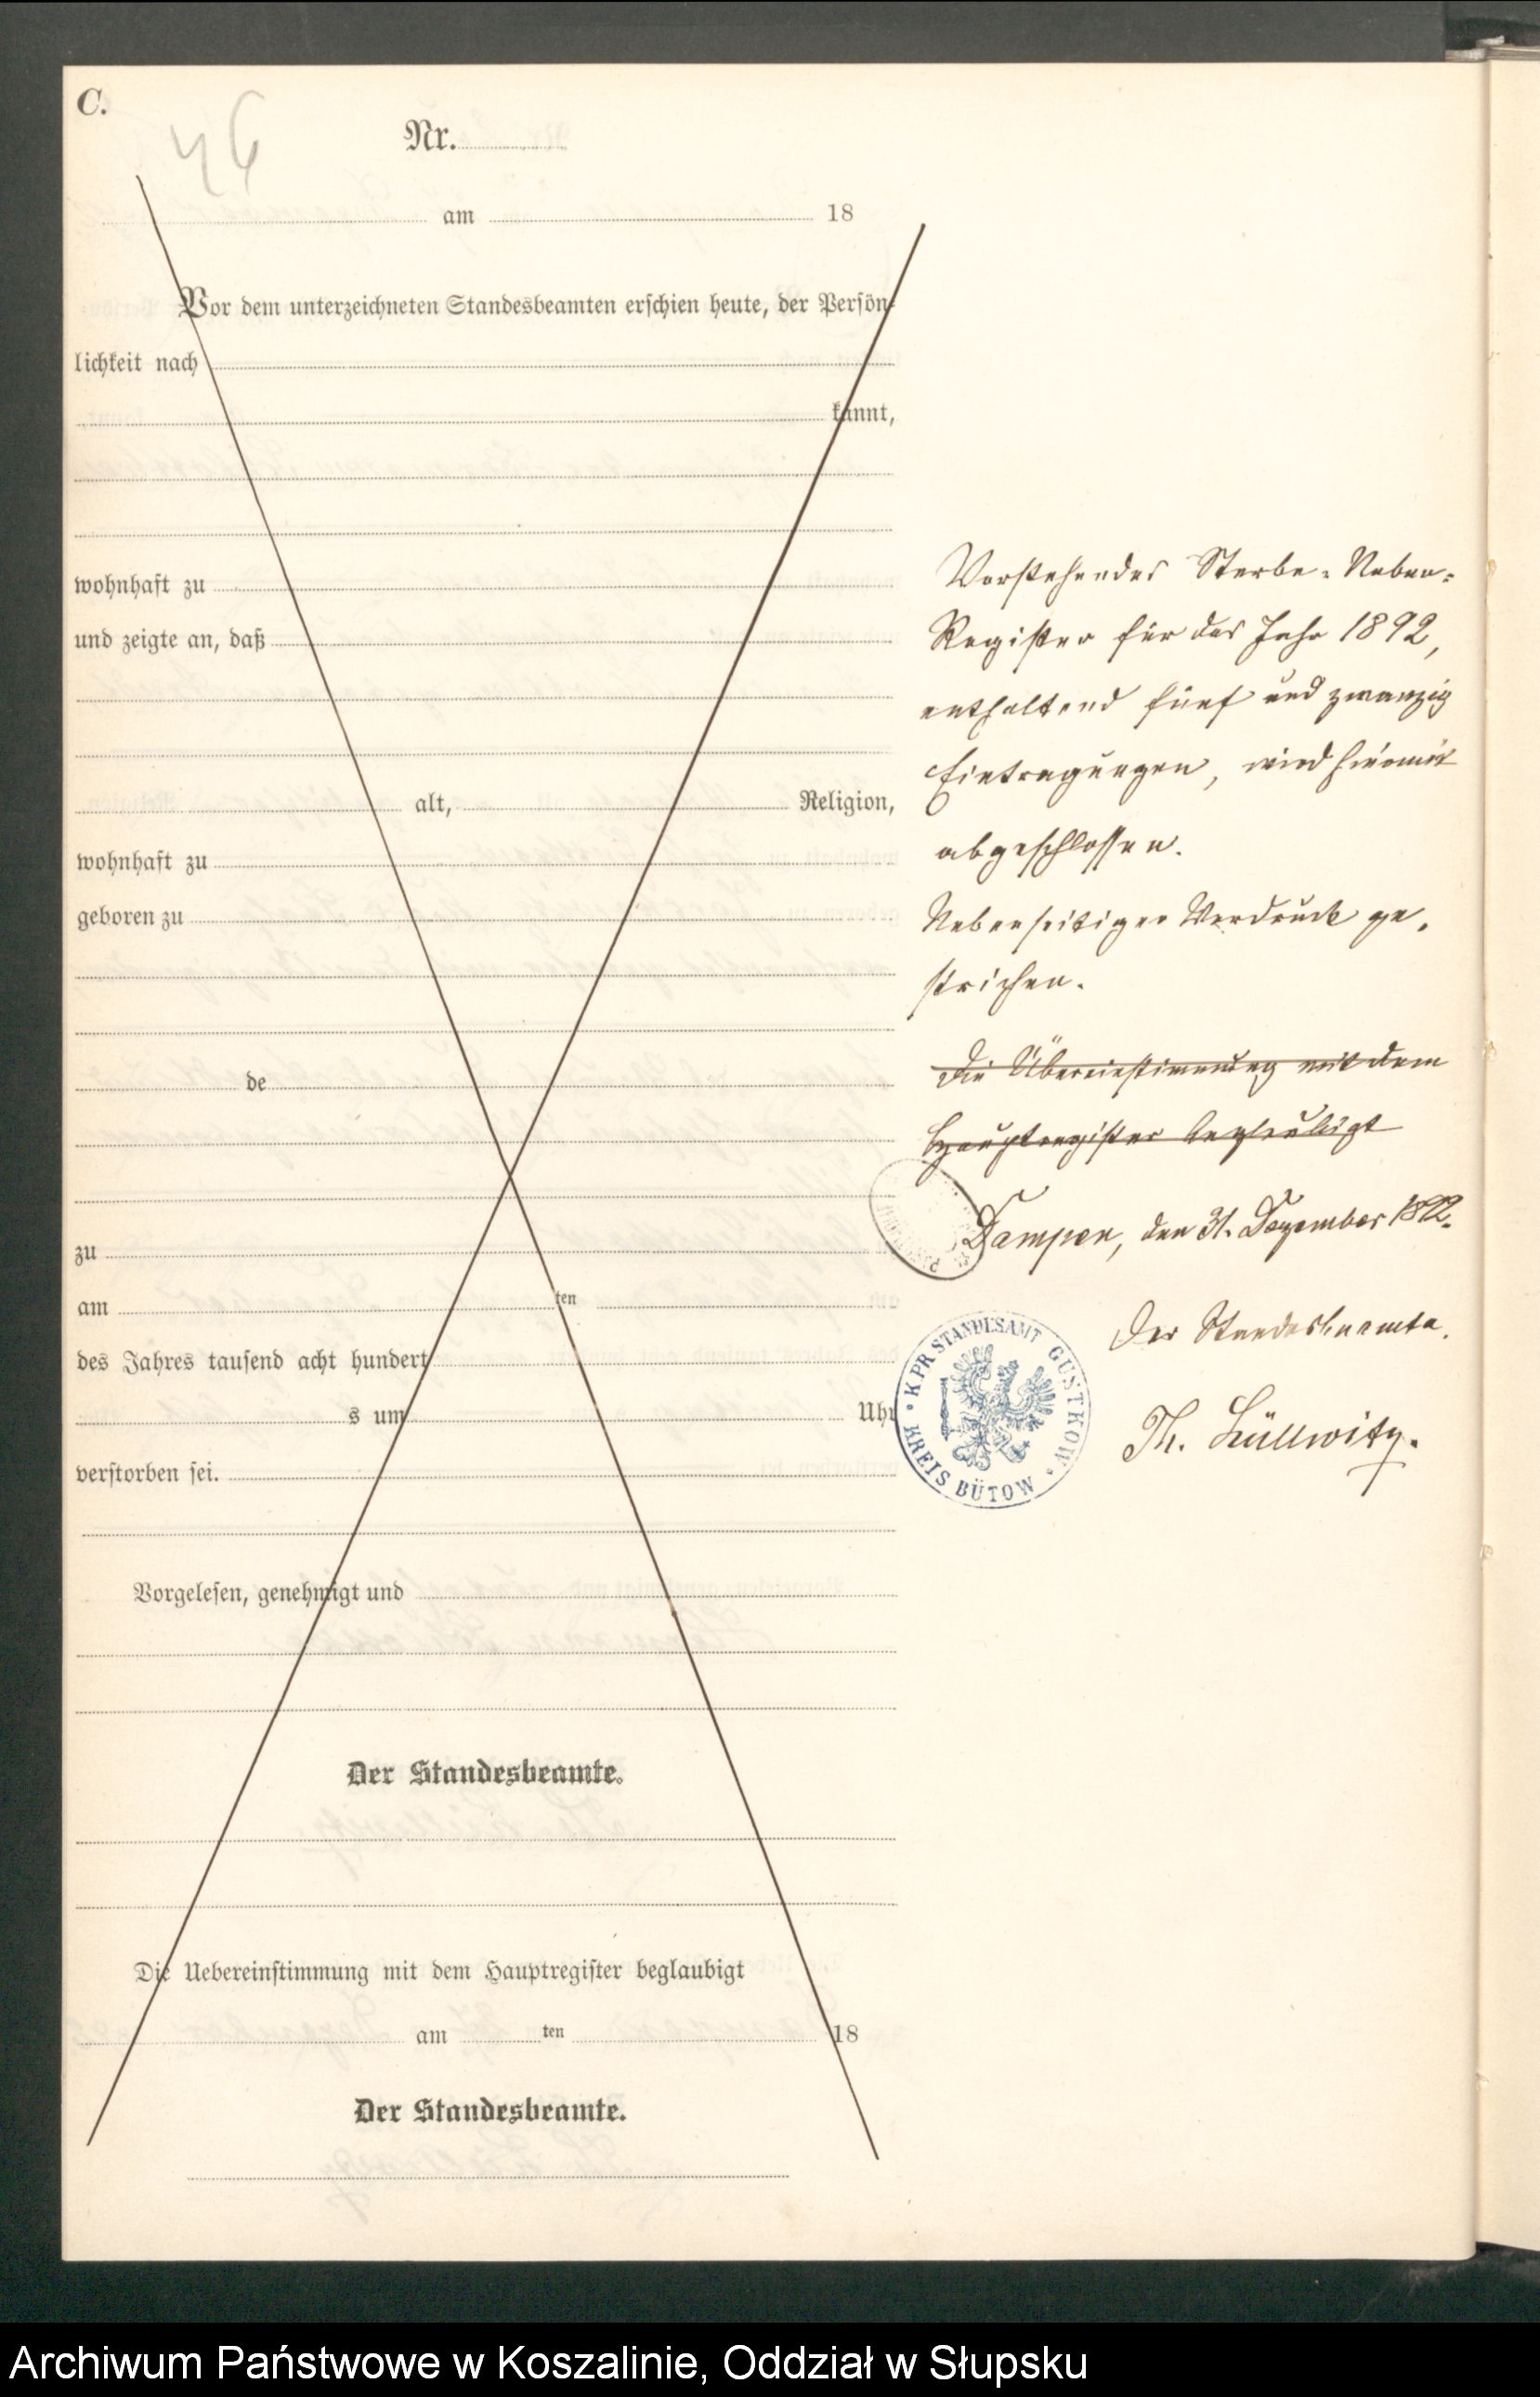 C.
46
Nr.
am 18
Vor dem unterzeichneten Standesbeamten erschien heute, der Persön-
lichkeit nach
kannt,
wohnhaft zu
und zeigte an, daß
alt, Religion,
wohnhaft zu
geboren zu
de
zu
am ten
des Jahres tausend acht hundert
s um Uhr
verstorben sei.
Vorgelesen, genehmigt und
Der Standesbeamte.
Die Uebereinstimmung mit dem Hauptregister beglaubigt
am ten 18
Der Standesbeamte.
Vorstehendes Sterbe-Neben-
Register für das Jahr 1892,
enthaltend fünf und zwanzig
Eintragungen, wird hiermit
abgeschlossen.
Nebenseitiger Vordruck ge-
strichen.
Die Übereinstimmung mit dem
Hauptregister beglaubigt
Dampen, den 31. Dezember 1892.
Der Standesbeamte.
Th. Lüllwitz.
K. PR STANDESAMT GUSTKOW
KREIS BÜTOW
Archiwum Państwowe w Koszalinie, Oddział w Słupsku